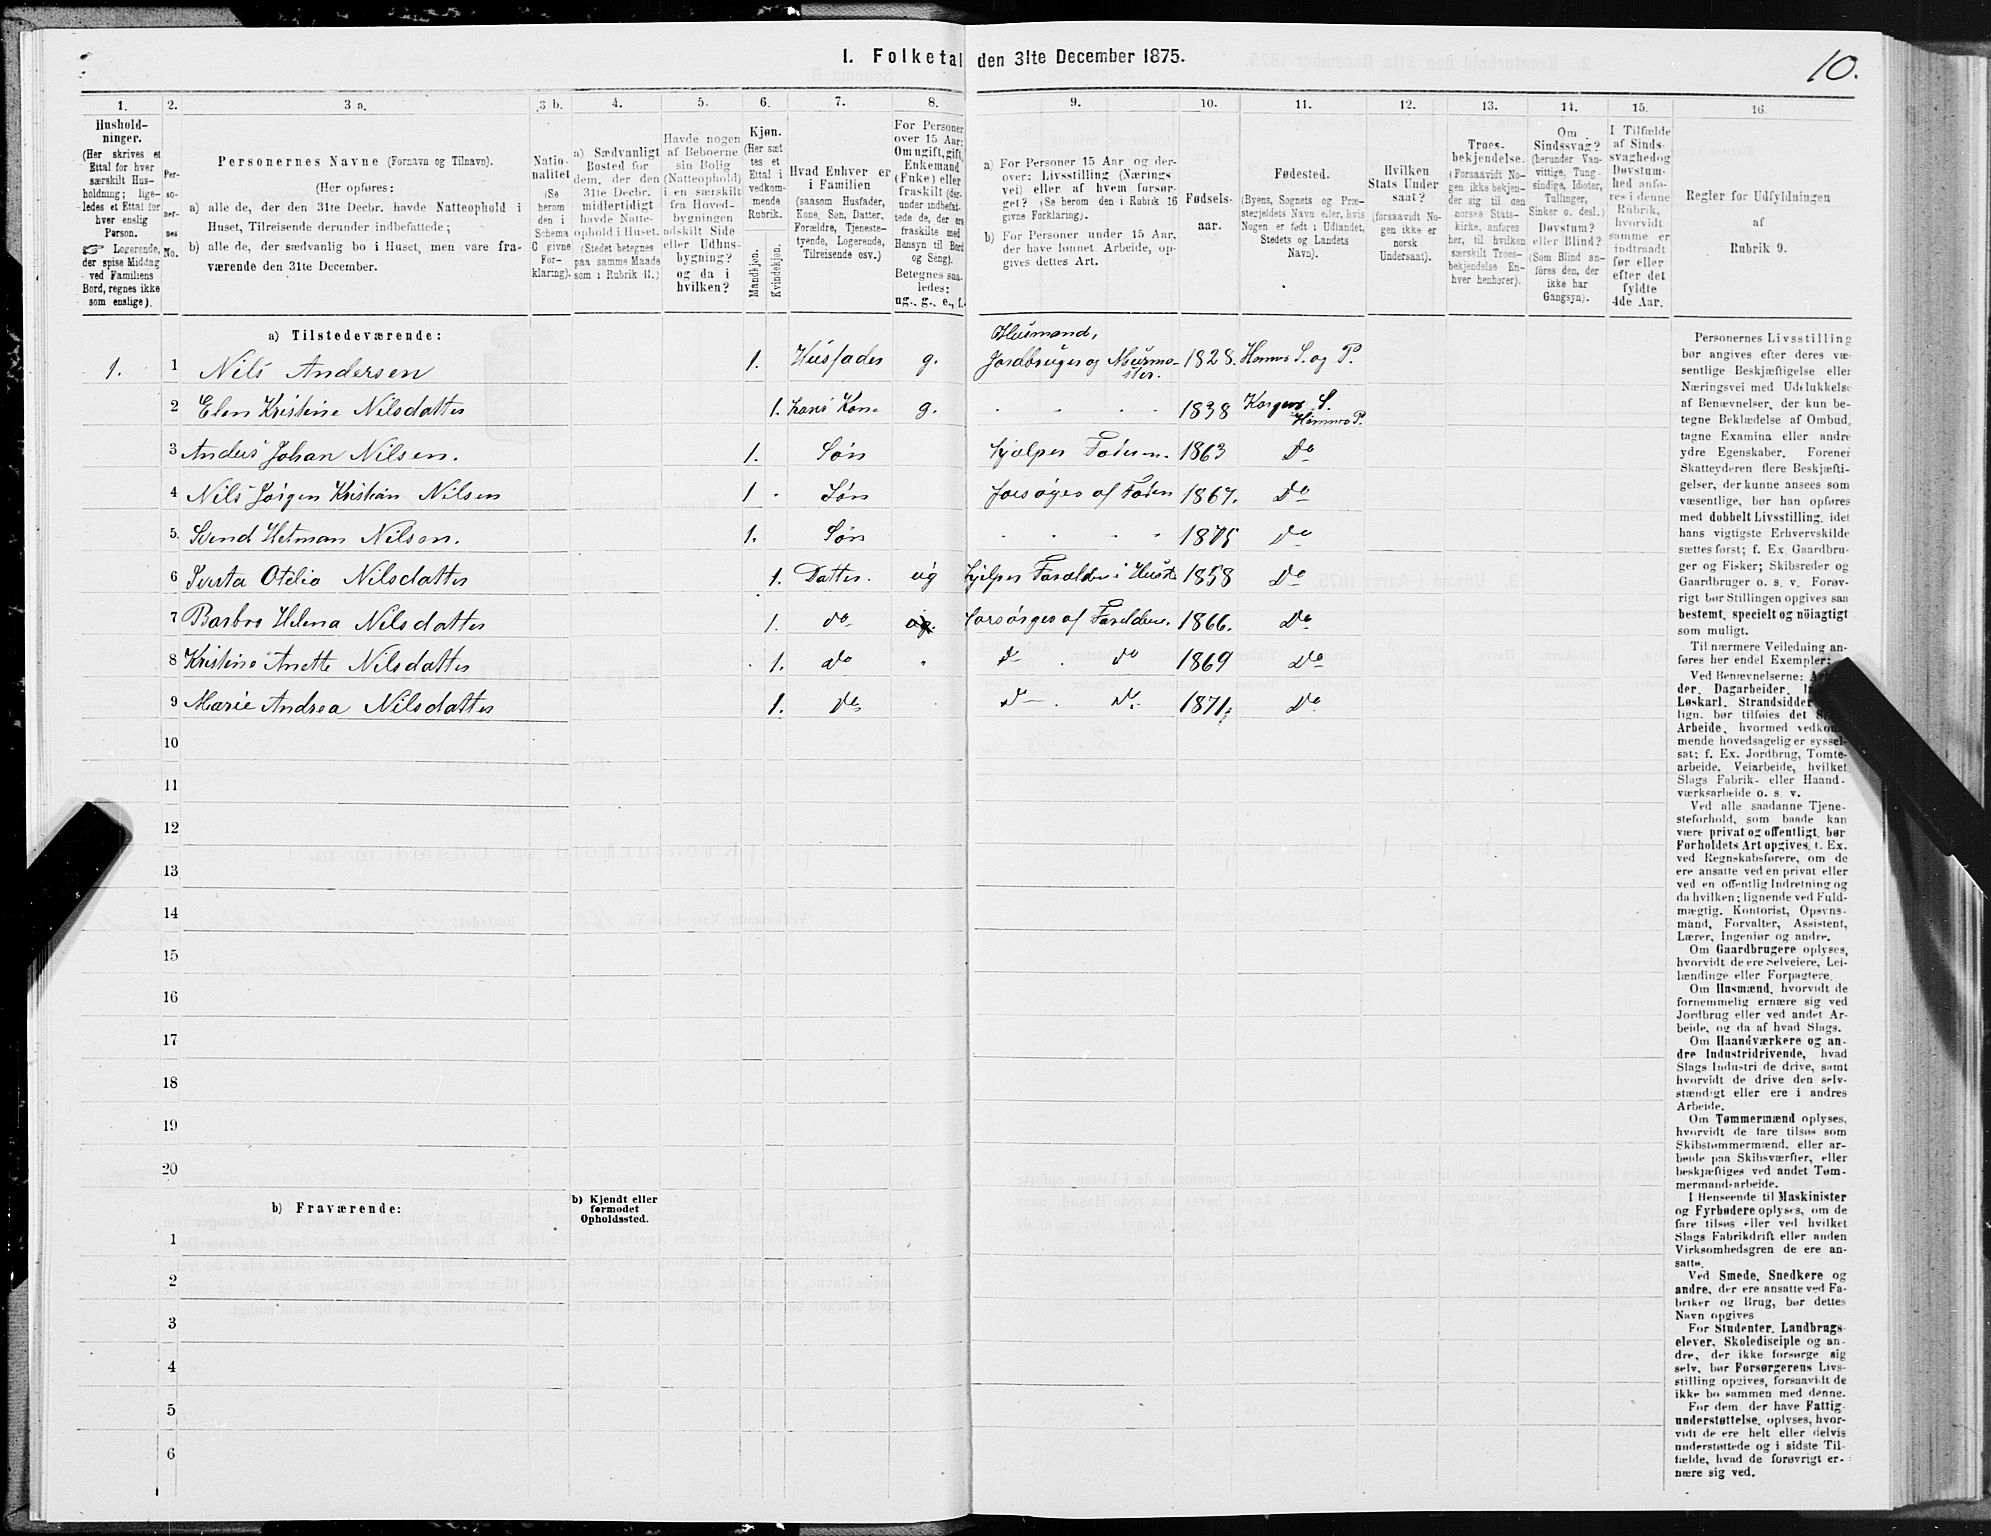 1. Folketal den 31te December 1875.
10.
1.
2.
3 a.
3 b.
4.
5.
6.
7.
8.
9.
10.
11.
12.
13.
14.
15.
16
Hushold-
ninger.
(Her skrives et
Ettal for hver
særskilt Hus-
holdning; lige-
ledes et Ettal for
hver enslig
Person.
☞ Logerende,
der spise Middag
ved Familiens
Bord, regnes ikke
som enslige).
Per-
so-
ner-
nes
No.
Personernes Navne (Fornavn og Tilnavn).
(Her opføres:
a) alle de, der den 31te Decbr. havde Natteophold i
Huset, Tilreisende derunder indbefattede;
b) alle de, der sædvanlig bo i Huset, men vare fra-
værende den 31te December.
Natio-
nalitet
(Se
herom
den i
Schema
C givne
For-
klaring).
a) Sædvanligt
Bosted for
dem, der den
31te Decbr.
midlertidigt
havde Natte-
ophold i Huset.
(Stedet betegnes
paa samme Maade
som i Rubrik 11.)
Havde nogen
af Beboerne
sin Bolig
(Natteophold)
i en særskilt
fra Hoved-
bygningen
adskilt Side-
eller Udhus-
bygning?
og da i
hvilken?
Kjøn.
(Her sæt
tes et
Ettal i
vedkom-
mende
Rubrik.
Mandkjøn.
Kvindekjøn.
Hvad Enhver er
i Familien
(saasom Husfader,
Kone, Søn, Datter,
Forældre, Tjeneste-
tyende, Logerende,
Tilreisende osv.)
For Personer
over 15 Aar:
Om ugift, gift,
Enkemand
(Enke) eller
fraskilt (der-
under indbefat-
tede de, der ere
fraskilte med
Hensyn til Bord
og Seng).
Betegnes saa-
ledes:
ug., g., e., f.
a) For Personer 15 Aar og der-
over: Livsstilling (Nærings
vei) eller af hvem forsør-
get? (Se herom den i Rubrik 16
givne Forklaring).
b) For Personer under 15 Aar,
der have lønnet Arbeide, op-
gives dettes Art.
Fødsels-
aar.
Fødested.
(Byens, Sognets og Præ-
stegjeldets Navn eller, hvis
Nogen er født i Udlandet,
Stedets og Landets
Navn).
Hvilken
Stats Under
saat?
(forsaavidt No-
gen ikke er
norsk
Undersaat).
Troes-
bekjendelse.
(Forsaavidt No-
gen ikke bekjen-
der sig til den
norske Stats-
kirke, anføres
her, til hvilken
særskilt Troes-
bekjendelse En-
hver henhører).
Om
Sindssvag?
(herunder Van-
vittige, Tung-
sindige, Idioter,
Tullinger,
Sinker o. desl.)
Døvstum?
eller Blind?
(Som Blind an-
føres den, der
ikke har
Gangsyn).
I Tilfælde
af Sinds-
svaghed og
Døvstum-
hed anfø-
res i denne
Rubrik,
hvorvidt
samme er
indtraadt
før eller
efter det
fyldte
4de Aar.
Regler før Udfyldningen
af
Rubrik 9.
a) Tilstedeværende:
1. 1 Nils Andersen 1. Husfader g. Husmand, Jordbruger og Murme-ster. 1828. Hemnes S. og P.
2 Elen Kristine Nilsdatter 1. hans Kone g. 1838 Korgens S. Hemnes P.
3 Anders Johan Nilsen. 1. Søn hjælper Faderen. 1863 Do
4 Nils Jørgen Kristian Nilsen 1 Søn forsørges af Faderen 1867. Do
5. Svend Hetman Nilsen. 1. Søn 1875 Do
6 Otelia Nilsdatter 1. Datter. ug hjelper Forældre i Huset 1858 Do
7 Barbro Helena Nilsdatter 1. do ug. forsørges af Foreldrene. 1866. Do
8 Kristine Anette Nilsdatter 1. do " D do 1869 Do
9 Marie Andrea Nilsdatter 1. do D Do 1871. Do
10
11
12
13
14
15
16
17
18
19
20
b) Fraværende:
b) Kjendt eller
formodet
Opholdssted.
1
2
3
4
5
6
Personernes Livsstilling
bør angives efter deres væ-
sentlige Beskjæftigelse eller
Næringsvei med Udelukkelse
af Benævnelser, der kun be-
tegne Beklædelse af Ombud,
tagne Examina eller andre
ydre Egenskaber. Forener
Skatteyderen flere Beskjæfti-
gelser, der kunne ansees som
væsentlige, bør han opføres
med dobbelt Livsstilling, idet
hans vigtigste Erhvervskilde
sættes først; f. Ex. Gaardbru-
ger og Fisker; Skibsreder og
Gaardbruger o. s. v. Forøv-
rigt bør Stillingen opgives saa
bestemt, specielt og nöiagtigt
som muligt.
Til nærmere Veiledning an-
føres her endel Exempler:
Ved Benævnelserne:
der, Dagarbeider,
Løskarl, Strandsidder
lign. bør tilføies det
Arbeide, hvormed vedkom-
mende hovedsagelig er syssel-
sat; f. Ex. Jordbrug, Tomte-
arbeide, Veiarbeide, hvilket
Slags Fabrik- eller Haand-
værksarbeide o. s. v.
Ved alle saadanne Tjene-
steforhold, som baade kan
være privat og offentligt, bør
Forholdets Art opgives, f. Ex.
ved Regnskabsførere, om de
ere ansatte ved en privat eller
ved en offentlig Indretning og
da hvilken; lignende ved Fuld-
mægtig, Kontorist, Opsyns-
mand, Forvalter, Assistent,
Lærer, Ingeniør og andre.
Om Gaardbrugere oplyses,
hvorvidt de ere Selveiere, Lei-
lændinge eller Forpagtere.
Om Husmænd, hvorvidt de
fornemmelig ernære sig ved
Jordbrug eller ved andet Ar-
beide, og da af hvad Slags.
Om Haandværkere og an-
dre Industridrivende, hvad
Slags Industri de drive, samt
hvorvidt de drive den selv-
stændigt eller ere i andres
Arbeide.
Om Tømmermænd oplyses,
hvorvidt de fare tilsøs som
Skibstømmermænd, eller ar-
beide paa Skibsværfter, eller
beskjæftiges ved andet Tøm-
mermand-arbeide.
I Henseende til Maskinister
og Fyrbødere oplyses, om de
fare tilsøs eller ved hvilket
Slags Fabrikdrift eller anden
Virksomhedsgren de ere an-
satte.
Ved Smede, Snedkere og
andre, der ere ansatte ved Fa-
briker og Brug, bør dettes
Navn opgives
For Studenter, Landbrugs-
elever, Skoledisciple og an-
dre, der ikke forsørge sig
selv, bør Forsørgerens Livs-
stilling opgives, forsaavidt de
ikke bo sammen med denne.
For dem, der have Fattig-
understøttelse, oplyses, hvor-
vidt de ere helt eller delvis
understøttede og i sidste Til-
fælde, hvad de forøvrigt er-
nære sig ved.